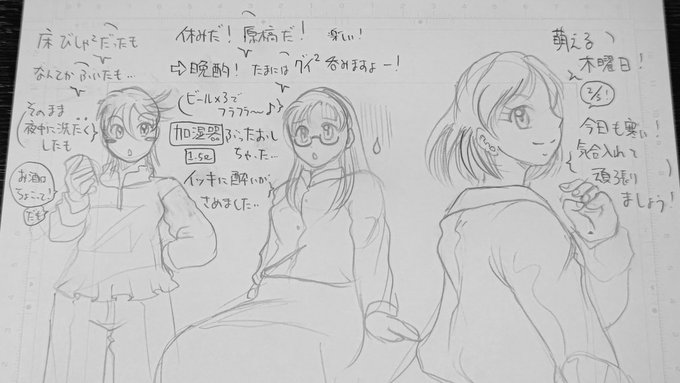 萌える
木曜日!
2/5!
今日も寒い!
気合入れて
頑張り
ましょう!
休みだ! 原稿だ! 楽しい!
⇨晩酌! たまにはグイ²呑みますよー!
ビール×3で
フラフラ〜♪
加湿器 ぶったおし
1.5ℓ ちゃった‥
イッキに酔いが
さめました‥
床びしゃ²だったも
なんでかふいたも‥
そのまま
夜中に洗たく
したも
お酒は
ちょこっと!
だも